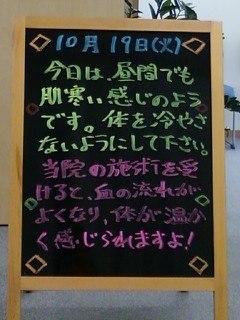 10月19日(火)
今日は、昼間でも
肌寒い感じのよう
です。体を冷やさ
ないようにして下さい。
当院の施術を受
けると、血の流れが
よくなり、体が温か
く感じられますよ!